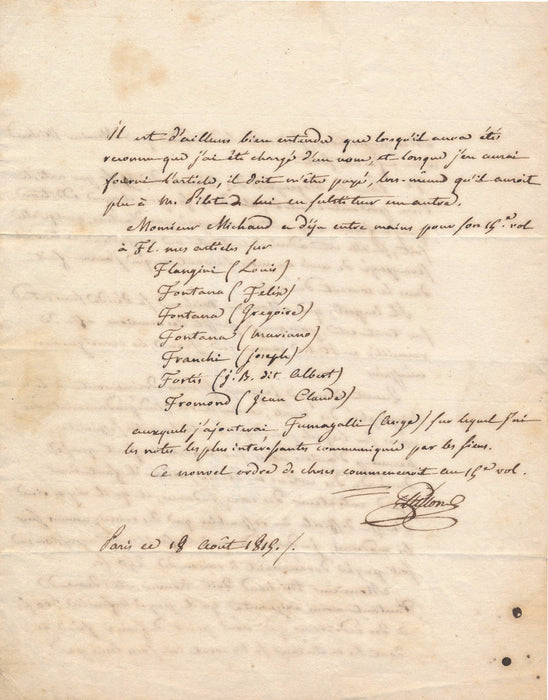 Il est d'ailleurs bien entendu que lorsqu'il aura étés
reconnu que j'ai été chargé d'un nom, et lorsque j'en aurai
fourni l'article, il doit m'être payé, lors-même qu'il auroit
plu à M. Pilet de lui en substituer un autre.
Monsieur Michaud a déja entre mains pour son 15.e vol
à Fl. mes articles sur
Flangini (Louis)
Fontana (Felix)
Fontana (Gregoire)
Fontana (Mariano)
Franchi (Joseph)
Fortis (J. B. dit Albert)
Fromond (Jean Claude)
auxquels j'ajouterai Fumagalli (Ange) sur lequel j'ai
les notes les plus intéressantes communiquée par les siens.
Ce nouvel ordre de choses commenceroit au 15.e vol.
Guillon
Paris ce 19 Août 1815./.